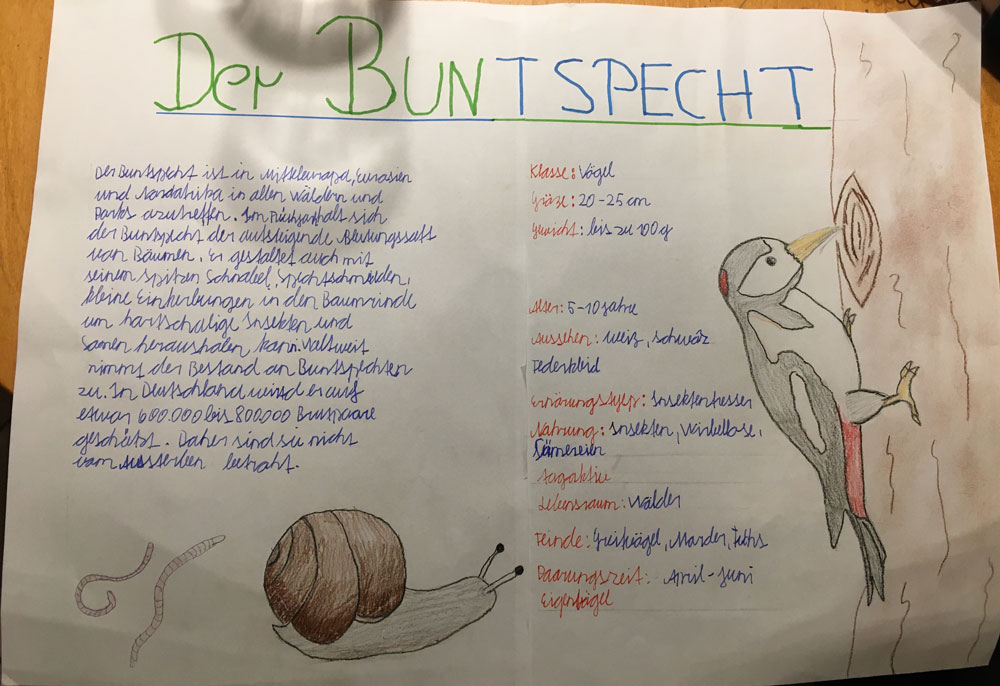 Der BUNTSPECHT
Der Buntspecht ist in Mitteleuropa, Eurasien
und Nordafrika in allen Wäldern und
Parks azutreffen. Im
der Buntspecht der aufsteigende Blutungssaft
von Bäumen. Er gestaltet auch mit
seinem spitzen Schnabel, Spechtschmieden,
kleine Einkerbungen in den Baumrinde
um hartschalige Insekten und
Samen herausholen kann. Weltweit
nimmt der Bestand an Buntspechten
zu. In Deutschland wird er auf
etwa 600.000 bis 800.000 Brutpaare
geschätzt. Daher sind sie nicht
vom Aussterben betroht.
Klasse: Vögel
Größe: 20-25 cm
Gewicht: bis zu 100g
Alter: 5-10 Jahre
Aussehen: weiß, schwarz
Federkleid
Ernärungstyp: Insektenfresser
Nahrung: Insekten, Wirbellose,
Sämereien
tagaktiv
Lebensraum: Wälder
Feinde: Greifvögel, Marder, Fuchs
Paarungszeit: April-Juni